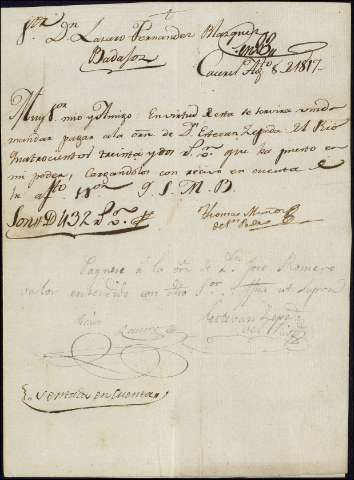 Sor. Dn. Lazaro Fernandez Blazquez
Badajoz
Cacers. Agto. 8 de 1817
Muy Sor. mio y Amigo. En virtud de esta se servira vmd.
mandar pagar a la orn. de Dn. Estevan Zepeda del Rio
quatrocientos treinta y dos Rs. vn. que ha puesto en
mi poder, cargandolos con recivo en cuenta de
su afto. Sor.
Q. S. M. B.
Son D 432 Rs. vn.
Thomas Muñoz
del Prado
Paguese à la orn. de Dn. Jose Romero
valor entendido con dho Sor. fha ut supra
Estevan Zepeda
del Rio
Romero
Sentada en Cuenta